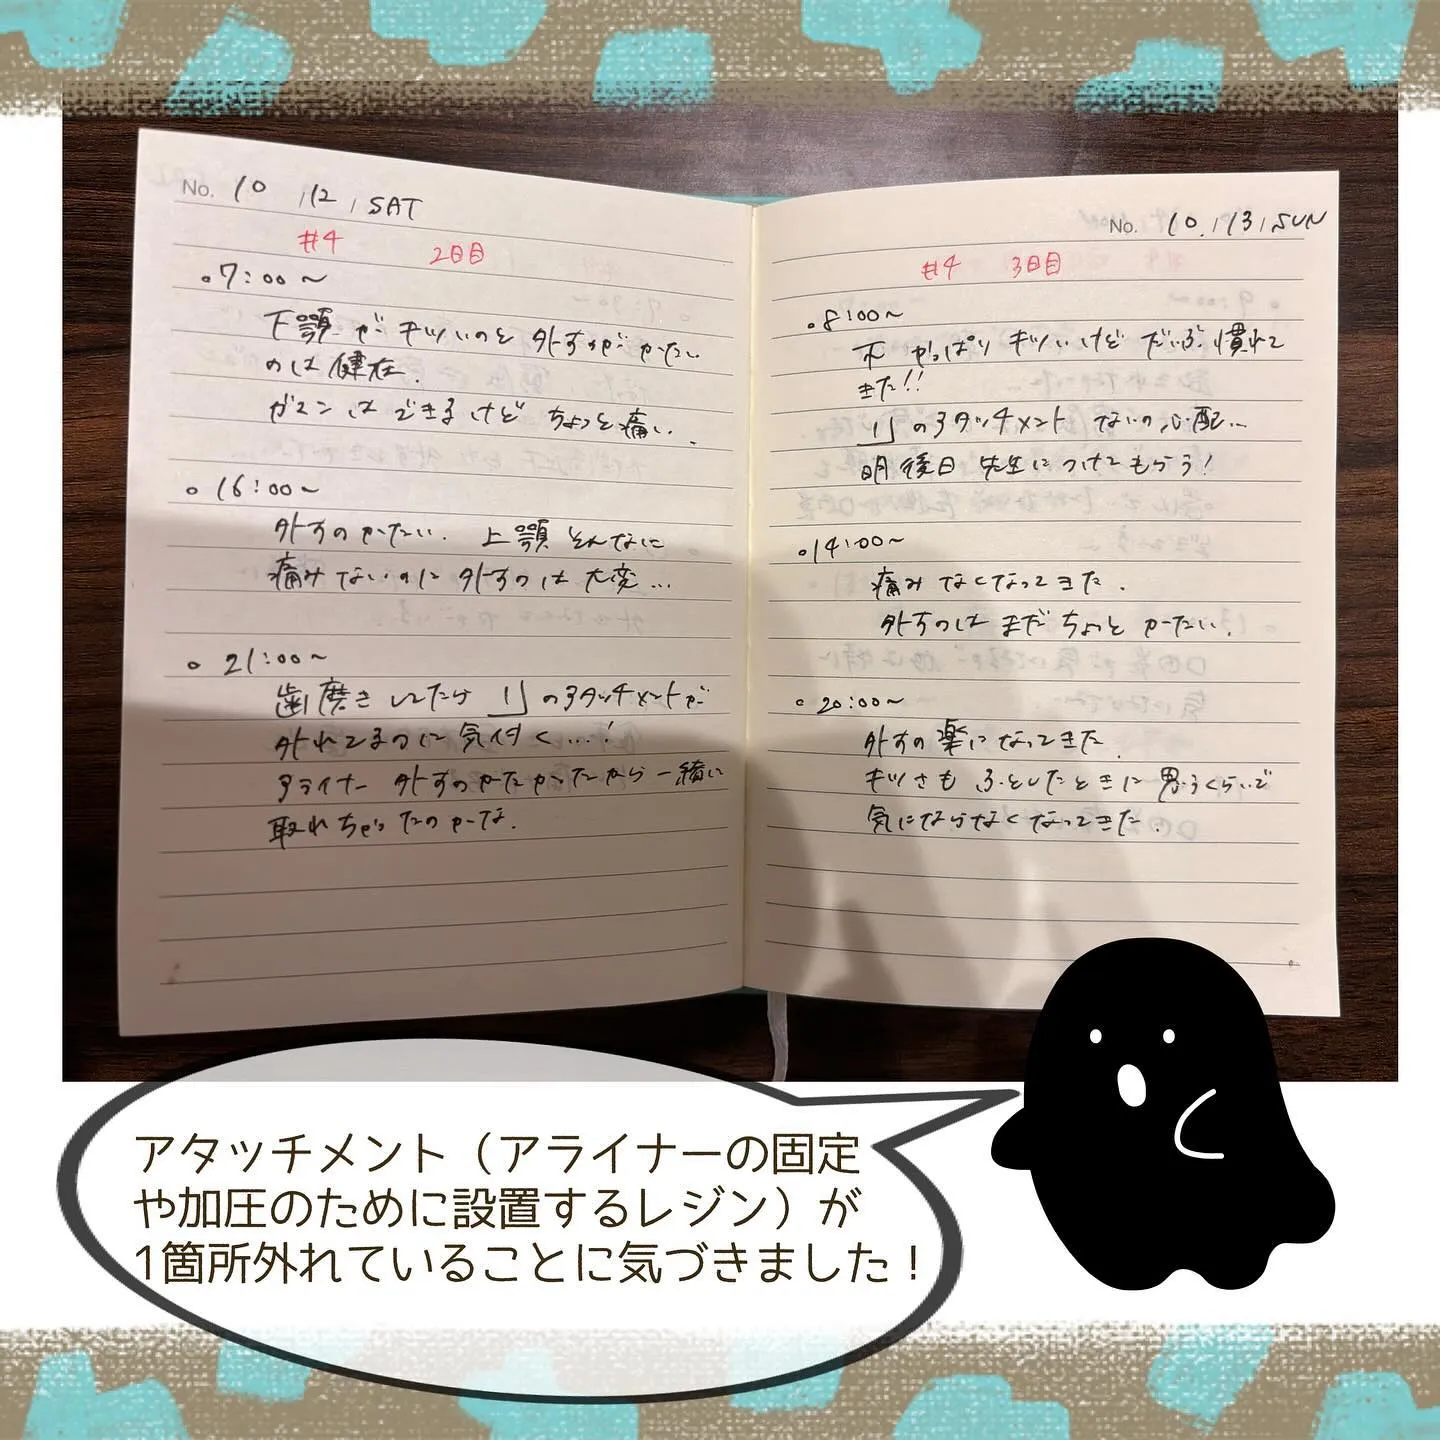 No. 10 / 12 / SAT
#4 2日目
○7:00〜
下顎がキツいのと外すがかたい
のは健在.
ガマンはできるけどちょっと痛い.
○16:00〜
外すのかたい. 上顎そんなに
痛みないのに外すのは大変…
○21:00〜
歯磨きしてたら 1」のアタッチメントが
外れてるのに気付く…!
アライナー外すのかたかったから一緒に
取れちゃったのかな.
No. 10 / 13 / SUN
#4 3日目
○8:00〜
下やっぱりキツいけどだいぶ慣れて
きた!!
1」のアタッチメントないの心配…
明後日先生につけてもらう!
○14:00〜
痛みなくなってきた.
外すのはまだちょっとかたい.
○20:00〜
外すの楽になってきた.
キツさもふとしたときに思うくらいで
気にならなくなってきた.
アタッチメント（アライナーの固定
や加圧のために設置するレジン）が
1箇所外れていることに気づきました！